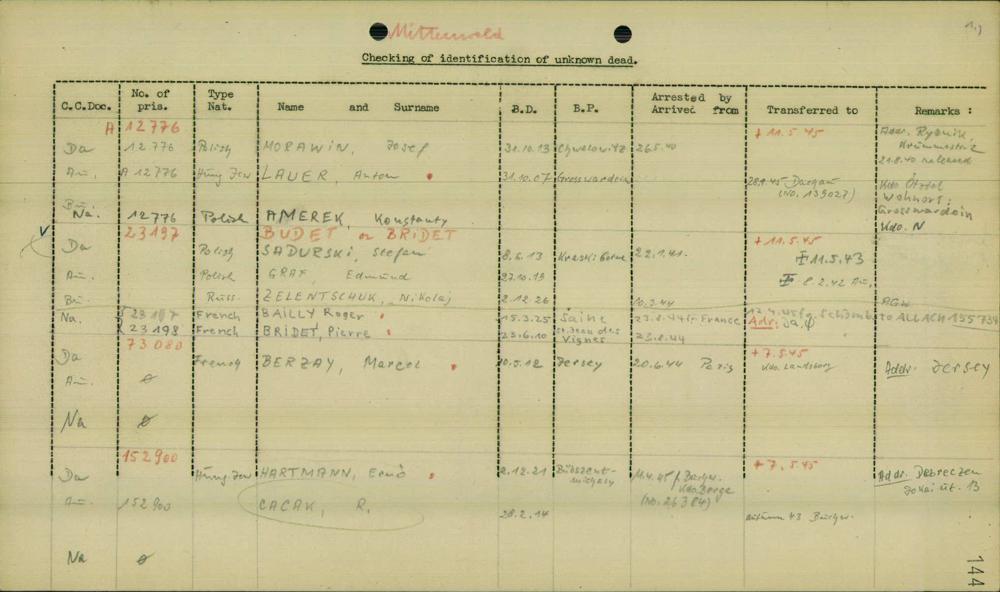 Mittenwald
Checking of identification of unknown dead.
C.C.Doc. No. of pris. Type Nat. Name and Surname B.D. B.P. Arrested by Arrived from Transferred to Remarks :
A 12776 + 11.5.45
Da 12776 Polish MORAWIN, Josef 31.10.13 Chwalowitz 26.5.40 Addr. Rybnik,
21.8.40 released
Au. A 12776 Hung Jew LAUER, Anton 31.10.07 Grosswardein 28.1.45 Dachau (No. 139027) Kdo Ötztal
Wohnort: Grosswardein
Bu.
Na. 12776 Polish AMEREK Konstanty Kdo. N
23197 BUDET or BRIDET + 11.5.45
Da Polish SADURSKI, Stefan 8.6.13 22.1.41. 11.5.43
Au. Polish GRAF, Edmund 27.10.19 8.2.42 Au,
Bu. Russ. ZELENTSCHUK, Nikolaj 2.12.26 10.3.44 AGW
Na. 23197 French BAILLY Roger 15.3.25 Saine 23.8.44 France to ALLACH 155734
23198 French BRIDET, Pierre 25.6.10 St. Jean des Vignes 23.8.44 Adr: Ja,
73080 + 7.5.45
Da French BERZAY, Marcel 10.5.12 Jersey 20.6.44 Paris Kdo. Landsberg Addr. Jersey
Au. ø
Na ø
152900 + 7.5.45
Da Hung Jew HARTMANN, Ernö 2.12.21 11.4.45 (No. 26384) Addr. Debreczen
Jokai út. 13
Au. 152900 CACAK, R. 28.2.14 autumn 43
Na ø
144